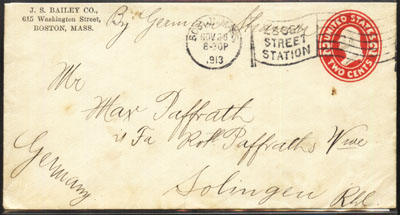 J. S. BAILEY CO.,
615 Washington Street,
BOSTON, MASS.
By German Steamer
BOSTON, MASS.
NOV 28
8-30P
1913
ESSEX
STREET
STATION
UNITED STATES
2 2
TWO CENTS
Mr
Max Paffrath
Fa Rob. Paffraths Wwe
Germany
Solingen
Rhl.